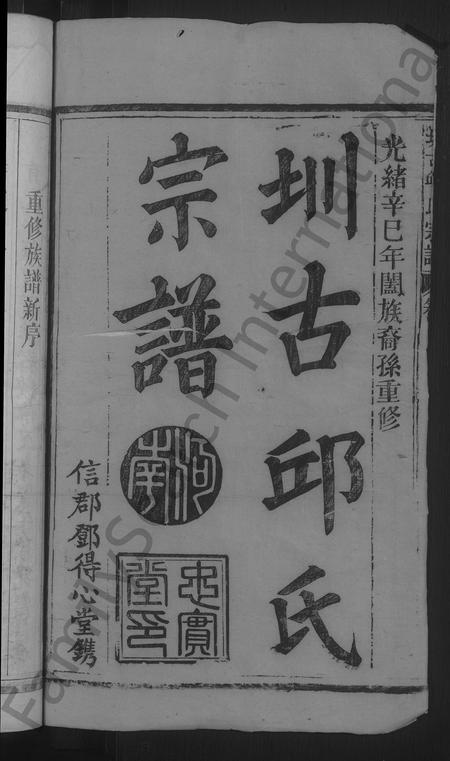 光緒辛巳年闔族裔孫重修
圳古邱氏
宗譜
河南
忠實堂印
信郡鄧得心堂鐫
重修族譜新序
FamilySearch International